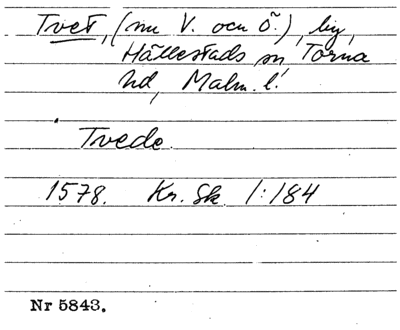 Tvet, (nu V. och Ö.), by,
Hällestads sn, Torna
hd, Malm. l.
Tvede.
1578. Kr. Sk. 1:184
Nr 5843.